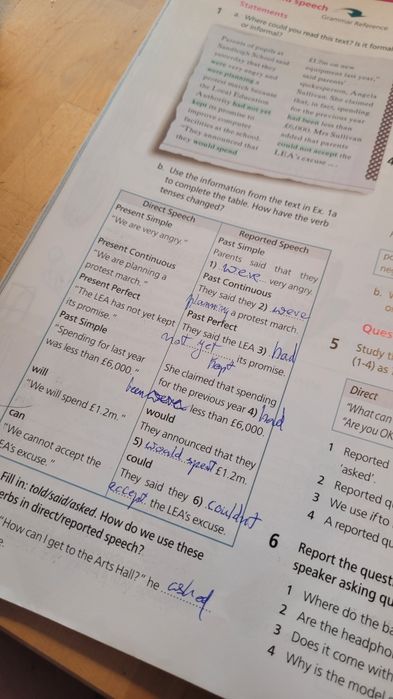 speech
Statements
Grammar Reference
1 a. Where could you read this text? Is it formal
or informal?
Parents of pupils at
Sandleigh School said
yesterday that they
were very angry and
were planning a
protest march because
the Local Education
Authority had not yet
kept its promise to
improve computer
facilities at the school.
"They announced that
they would spend
£1.2m on new
equipment last year,"
said parents'
spokesperson, Angela
Sullivan. She claimed
that, in fact, spending
for the previous year
had been less than
£6,000. Mrs Sullivan
added that parents
could not accept the
LEA's excuse ...
b. Use the information from the text in Ex. 1a
to complete the table. How have the verb
tenses changed?
Direct Speech
Present Simple
"We are very angry."
Present Continuous
"We are planning a
protest march."
Present Perfect
"The LEA has not yet kept
its promise."
Past Simple
"Spending for last year
was less than £6,000."
will
"We will spend £1.2m."
can
"We cannot accept the
LEA's excuse."
Reported Speech
Past Simple
Parents said that they
1) were very angry.
Past Continuous
They said they 2) were
planning a protest march.
Past Perfect
They said the LEA 3) had
not yet kept its promise.
She claimed that spending
for the previous year 4) had
been less than £6,000.
would
They announced that they
5) would spent £1.2m.
could
They said they 6) couldnt
accept the LEA's excuse.
Fill in: told/said/asked. How do we use these
verbs in direct/reported speech?
"How can I get to the Arts Hall?" he asked
4
b.
Ques
5 Study t
(1-4) as
Direct
"What can
"Are you OK
1 Reported
'asked'.
2 Reported q
3 We use if to
4 A reported qu
6 Report the quest
speaker asking qu
1 Where do the ba
2 Are the headpho
3 Does it come with
4 Why is the model